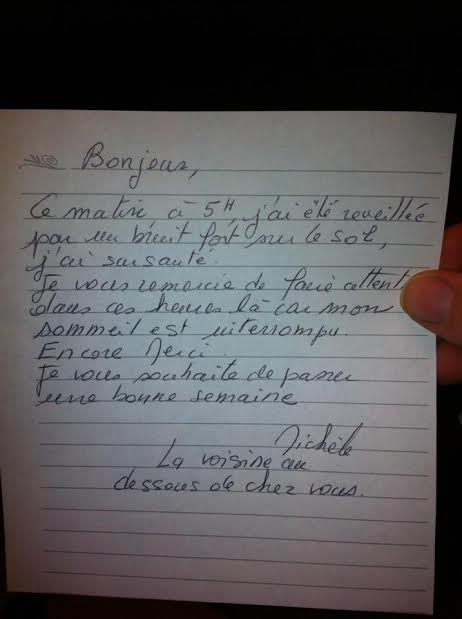 Bonjour,
Ce matin, à 5H j'ai été reveillée
par un bruit fort sur le sol,
j'ai sursauté.
Je vous remercie de faire attent
dans ces heures là car mon
sommeil est interrompu.
Encore Merci
Je vous souhaite de passer
une bonne semaine
Michèle
La voisine au
dessous de chez vous.